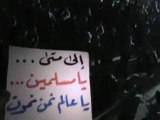 إلى متى...
يا مسلمين...
يا عالم نحن نموت